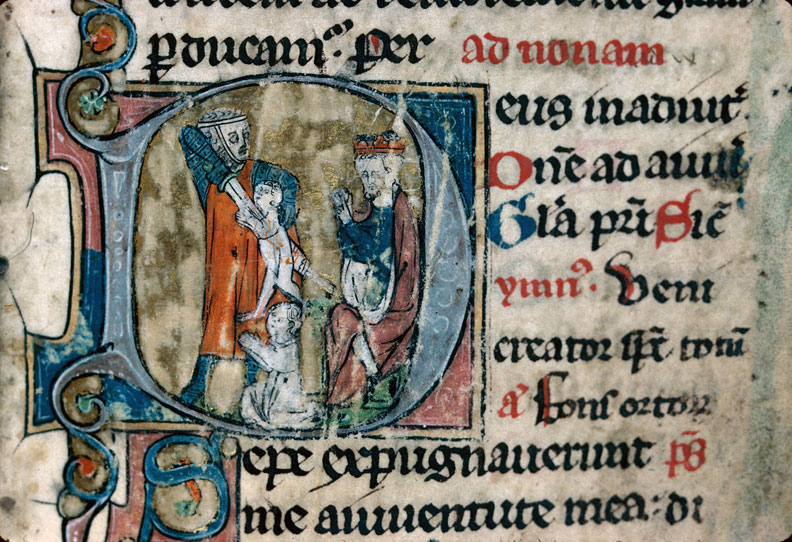 perducam². Per ad nonam
Deus in adiut͛
Dn̄e ad adiuū
Gl̄a pr̄i Sic̄
ymn⁹. Veni
creator sp̄e totū
a᷎ Consortor
Sepe expugnauerunt ps̄
me a iuuentute mea: di